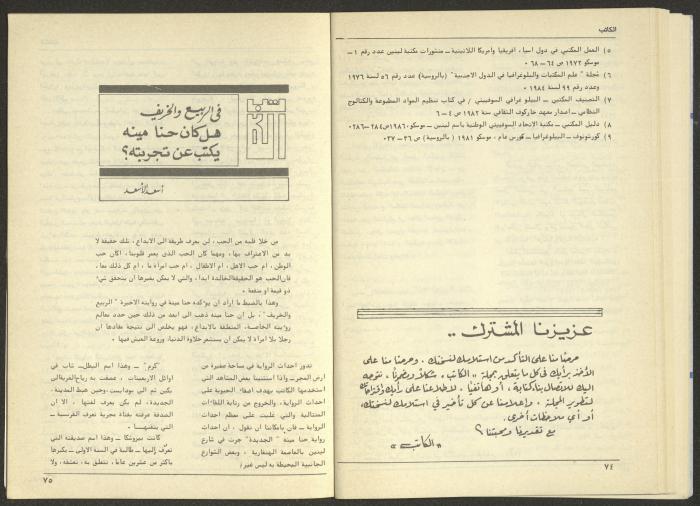 الكاتب
٥) العمل المكتبي في دول اسيا، افريقيا وامريكا اللاتينية ــ منشورات مكتبة لينين عدد رقم ١ ــ
موسكو ١٩٧٢ ص ٦٤ ــ ٦٨ ٠
٦) مجلة " علم المكتبات والببلوغرافيا في الدول الاجنبية " (بالروسية) عدد رقم ٥٦ لسنة ١٩٧٦
وعدد رقم ٩٩ لسنة ١٩٨٤ ٠
٧) التصنيف المكتبي ــ الببلو غرافي السوفييتي / في كتاب تنظيم المواد المطبوعة والكتالوج
النظامي ــ اصدار معهد خاركوف الثقافي سنة ١٩٨٢ ص ٤ ــ ٦
٨) دليل المكتبي ــ مكتبة الاتحاد السوفييتي الوطنية باسم لينين ــ موسكو ١٩٨٦ ص ٢٨٤ــ٢٨٦٠
٩) كورشونوف ــ الببلوغرافيا ــ كورس عام ، موسكو ١٩٨١ (بالروسية) ص ٣٦ ــ ٣٧٠
عزيزنا المشترك ..
حرصنا منا على التأكد من استلامك لنسختك ، وحرصنا منا على
الأخذ برأيك في كل ما يتعلق بمجلة « الكاتب » شكلاً ومضموناً ، نتوجه
اليك للاتصال بنا كتابة ، أو هاتفياً ، لاطلاعنا على رأيك واقتراحاتك
لتطوير المجلة . واعلامنا عن كل تأخير في استلامك لنسختك ،
أو أي ملاحظات أخرى .
مع تقديرنا ومحبتنا ؟
« الكاتب »
٧٤
الكاتب
في الربيع والخريف
هل كان حنا مينه
يكتب عن تجربته؟
أسعد الأسعد
من خلا قلبه من الحب ، لن يعرف طريقه الى الابداع ، تلك حقيقة لا
بد من الاعتراف بها ، ومهما كان الحب الذي يعمر قلوبنا ، اكان حب
الوطن ، ام حب الاهل ، ام الاطفال ، ام حب امرأة ما ، ام كل ذلك معا ،
فان الحب هو الحقيقة الخالدة ابدا ، والتي لا يمكن بغيرها ان يتحقق شيء
ذو قيمة او منفعة ٠
وهذا بالضبط ما اراد ان يؤكده حنا مينة في روايته الاخيرة " الربيع
والخريف " ، بل ان حنا مينة ذهب الى ابعد من ذلك حين حدد معالم
روايته الخاصة ، المتعلقة بالابداع ، فهو يخلص الى نتيجة مفادها ان
رجلا بلا امرأة لا يمكن ان يستشعر حلاوة الدنيا، وروعة العيش فيها ٠
تدور احداث الرواية في ساحة صغيرة من
ارض المجر ــ واذا استثنينا بعض المشاهد التي
استخدمها الكاتب بهدف اضفاء الحيوية على
احداث الرواية ، والخروج من رتابة اللقاءات
المتتالية والتي غلبت على معظم احداث
الرواية ــ فان بامكاننا ان نقول ، ان احداث
رواية حنا مينة " الجديدة " جرت في شارع
لينين بالعاصمة الهنغارية ، وبعض الشوارع
الجانبية المحيطة به ليس غير ؛
" كرم " ــ وهذا اسم البطل ــ شاب في
اوائل الاربعينات ، عصفت به رياح الغربة الى
بكين ثم الى بودابست ، وحين هبط المدينة ،
الجديدة ، لم يكن يعرف لغتها ، الا ان
الصدفة عرفته بفتاة مجرية تعرف الفرنسية ــ
التي يتقنها ــ ٠
كانت بيروشكا ــ وهذا اسم صديقته التي
تعرّف إليها ــ طالبة في السنة الاولى ــ يكبرها
باكثر من عشرين عاما ، تتعلق به ، تعشقه ، ولا
٧٥